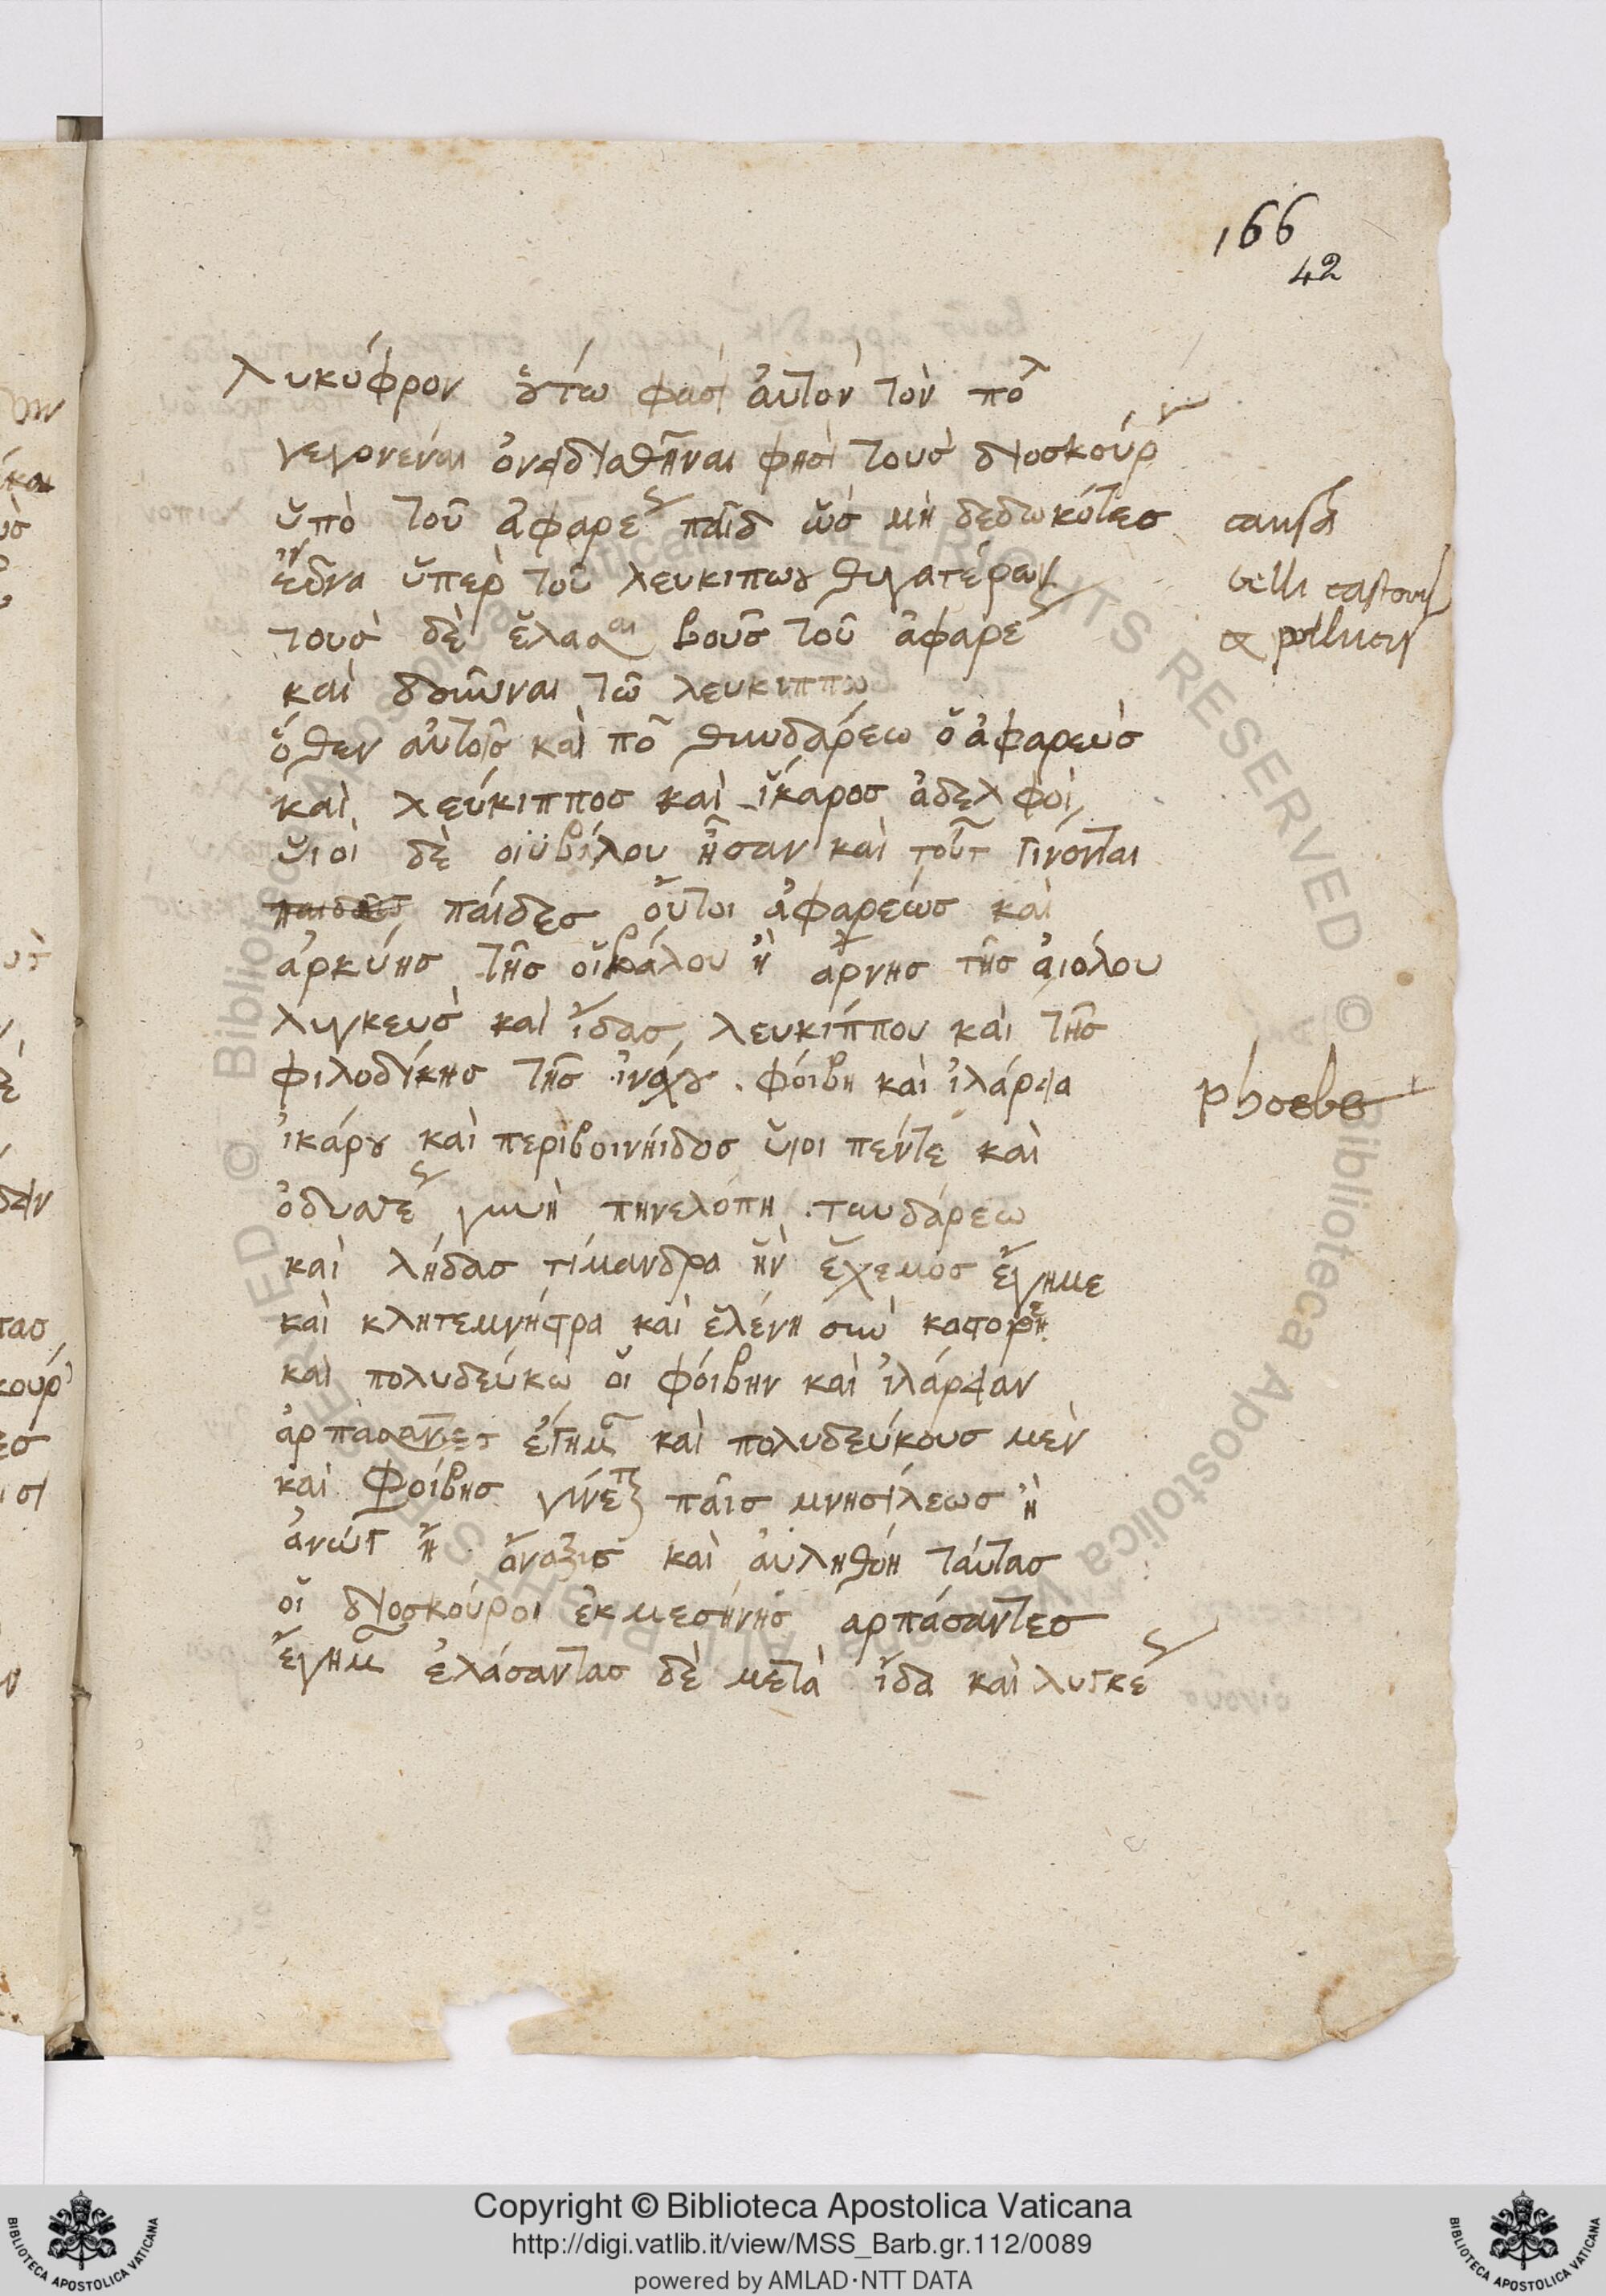 166
42
λυκύφρον ȣ̔́τω φασὶ ἀυτὸν τὸν πολ
γεγονεναι ὀνειδιαθῆναι φησὶ τοὺσ διοσκούρ
ὑπὸ τοῦ ἀφαρε παῖδ ὡσ μὴ δεδωκότεσ
ἕδνα ὑπερ τοῦ λευκιπωυ θυγατέρων
τουσ δὲ ἔλασαι βοῦσ τοῦ ἀφαρε
και δοῦναι τῶ λευκιππω
ὅθεν αὐτοῖσ καὶ πο θυνδαρέω ὁ ἀφαρεὺσ
καὶ λεύκιπποσ καὶ ἴκαροσ ἀδελφοὶ,
ὑιοὶ δὲ οἰϋβάλου ἦσαν καὶ τοῦτ γινόνται
παίδεσ οὗτοι ἀφαρεώσ καὶ
ἀρκύησ τῆσ οἰβάλου ἢ ἄρνησ τῆσ ἀιόλου
λυγκευσ καὶ ἴδασ, λευκίππου καὶ τῆσ
φιλοδίκησ τῆσ ἰνάχȣ. φόιβη καὶ ἰλάρεια
ἰκάρȣ καὶ περιβοινήιδοσ ὑιοι πέντε καὶ
ὀδυσσε γυνὴ πηνελόπη. τυνδάρεω
καὶ λήδασ τίμανδρα ἣν ἔχεμοσ ἔγημε
καὶ κλητεμνήστρα καὶ ἑλένη σὺν καστορ
καὶ πολυδεύκω οἱ φόιβην καὶ ἰλάρειαν
ἁρπασαντεσ ἔγημ καὶ πολυδεύκουσ μὲν
καὶ Φοίβησ γίνεται παῖσ μνησίλεωσ ἢ
ἀνώγ ἢ ἄναξισ καὶ ἀυληθύη ταύτασ
οἱ διοσκούροι ἐκ μεσήνησ ἁρπάσαντεσ
ἔγημ ἐλάσαντασ δὲ μετὰ ἴδα καὶ λυγκε
causa
belli castoris
& pollucis
Phoebe
Copyright © Biblioteca Apostolica Vaticana
http://digi.vatlib.it/view/MSS_Barb.gr.112/0089
powered by AMLAD·NTT DATA
BIBLIOTECA APOSTOLICA VATICANA
BIBLIOTECA APOSTOLICA VATICANA